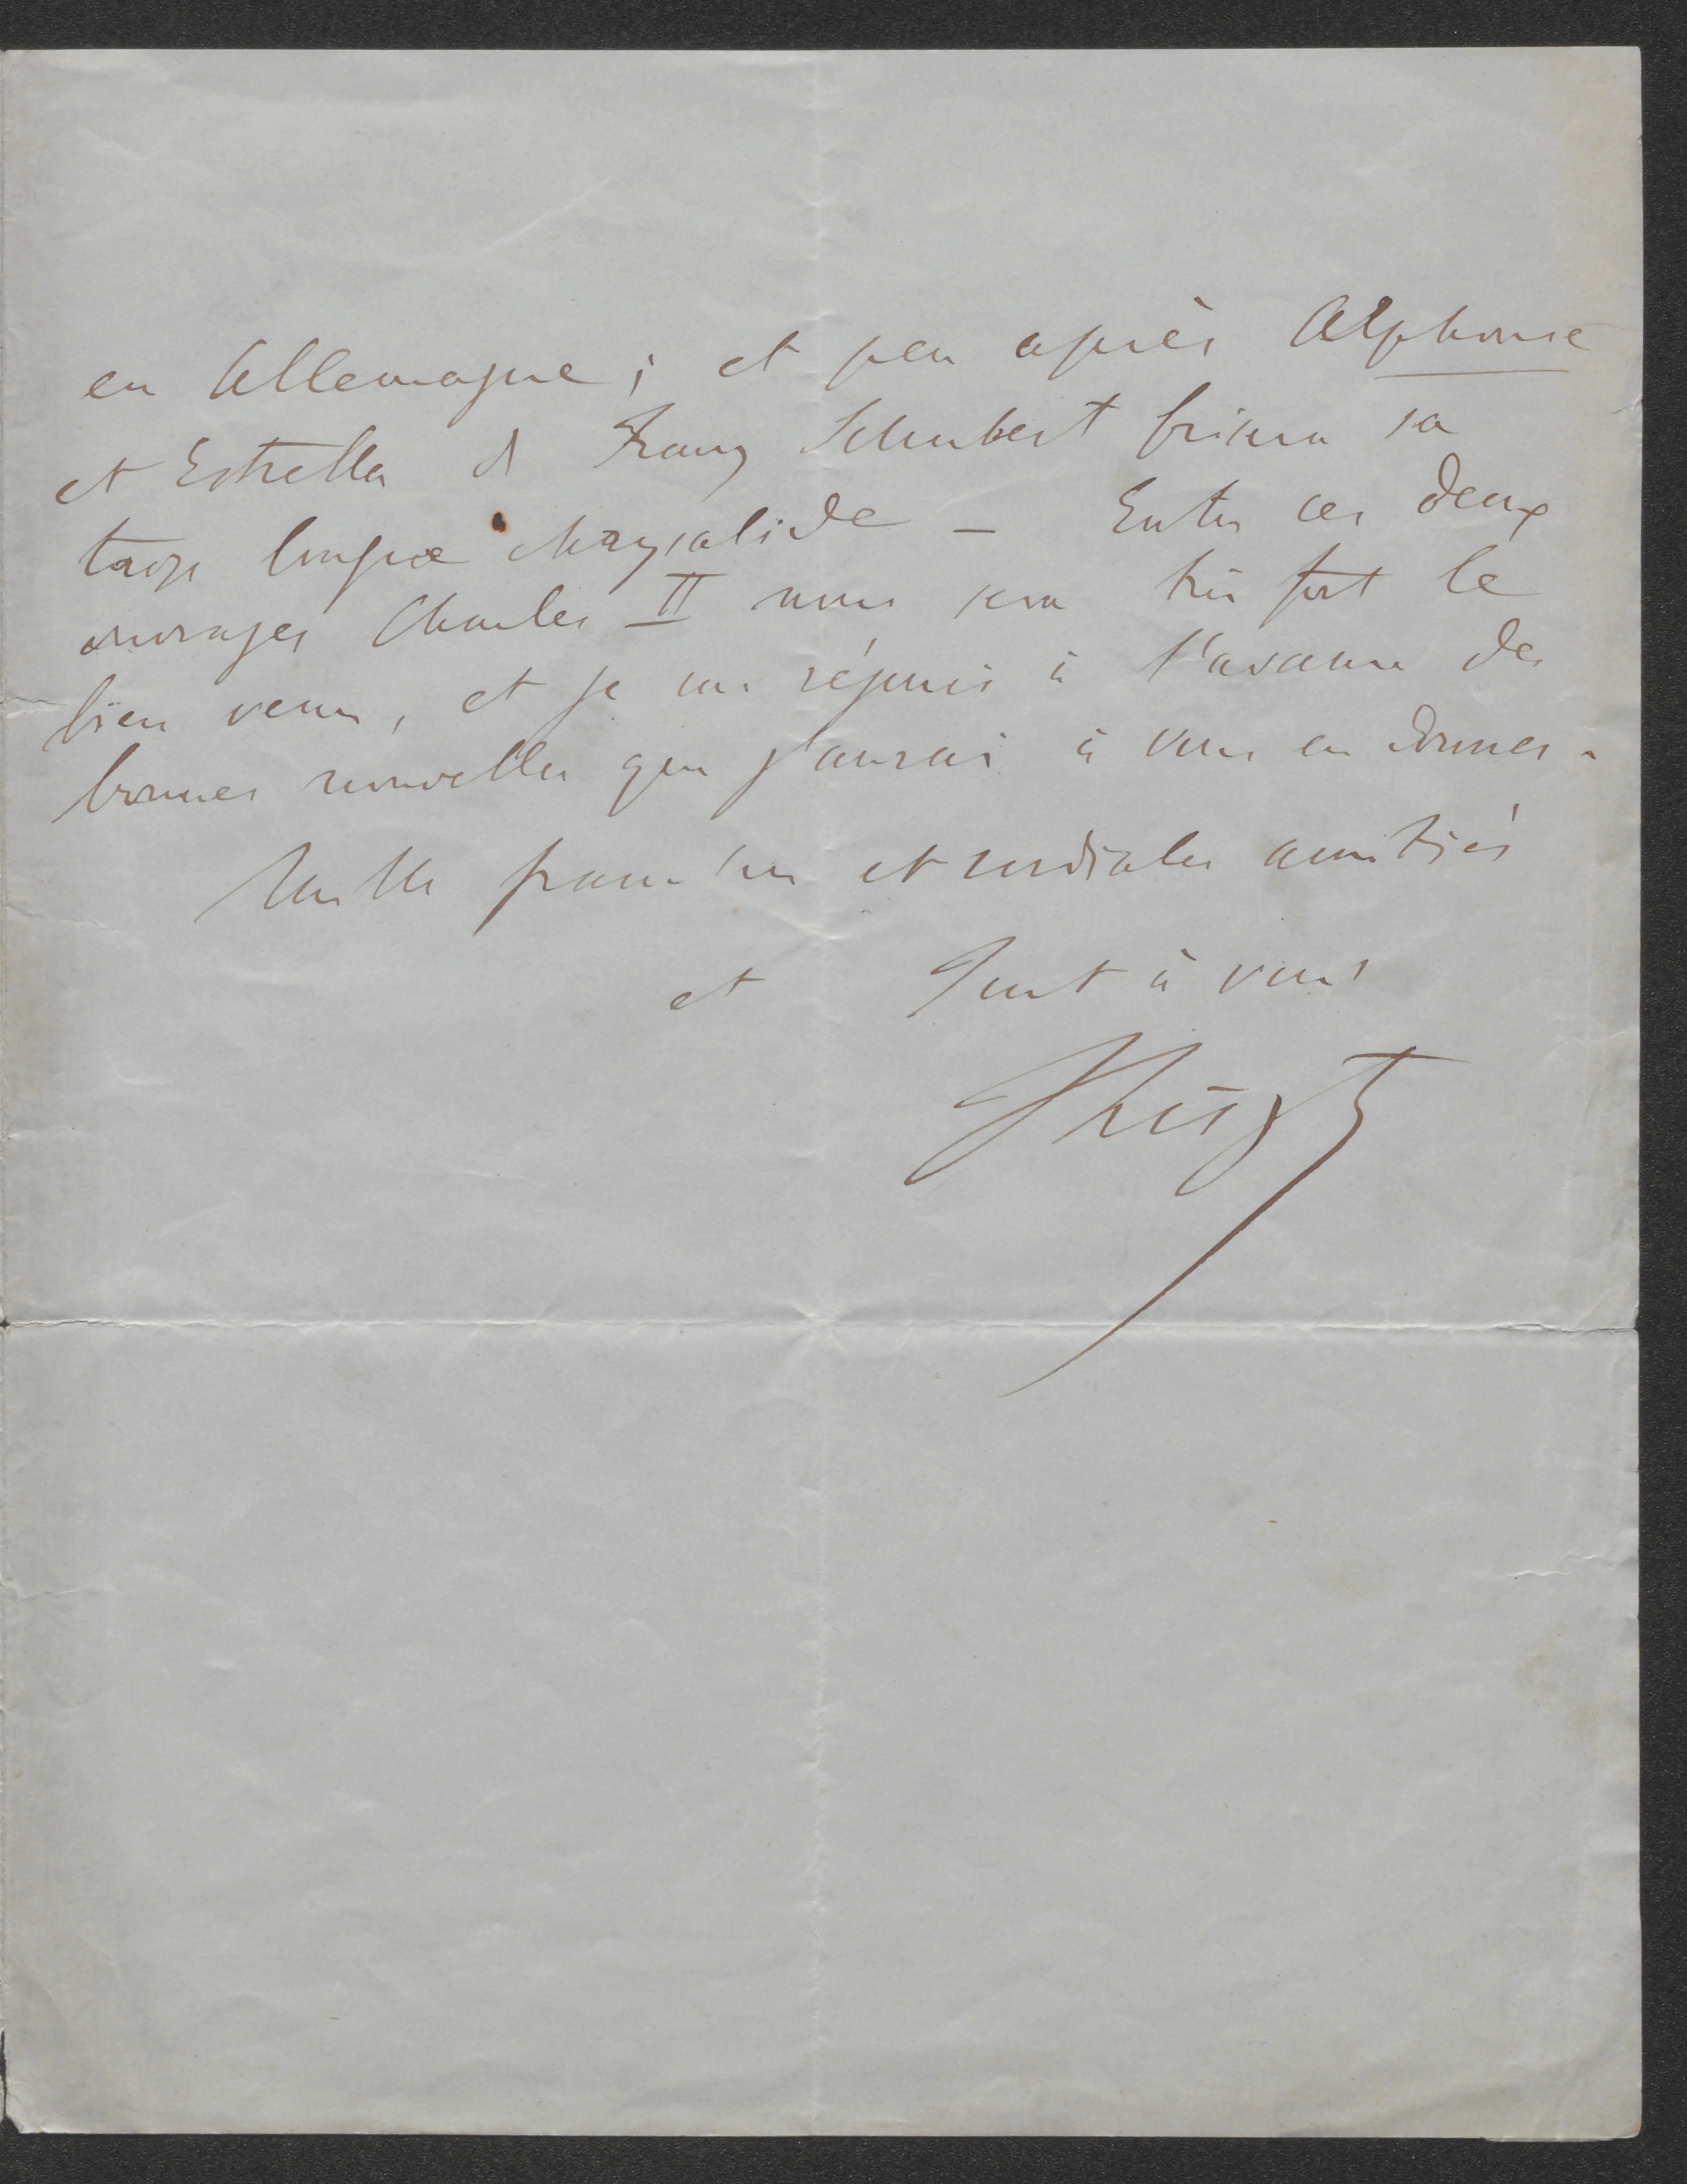 en Allemagne ; et peu après Alphonse
et Estrella de Franz Schubert brisera sa
trop longue chrysalide – Entre ces deux
ouvrages Charles II nous sera très fort le
bien venu, et je me réjouis à l'avance des
bonnes nouvelles que j'aurai à vous en donner.
Mille franches et cordiales amitiés
et Tout à vous
FLiszt